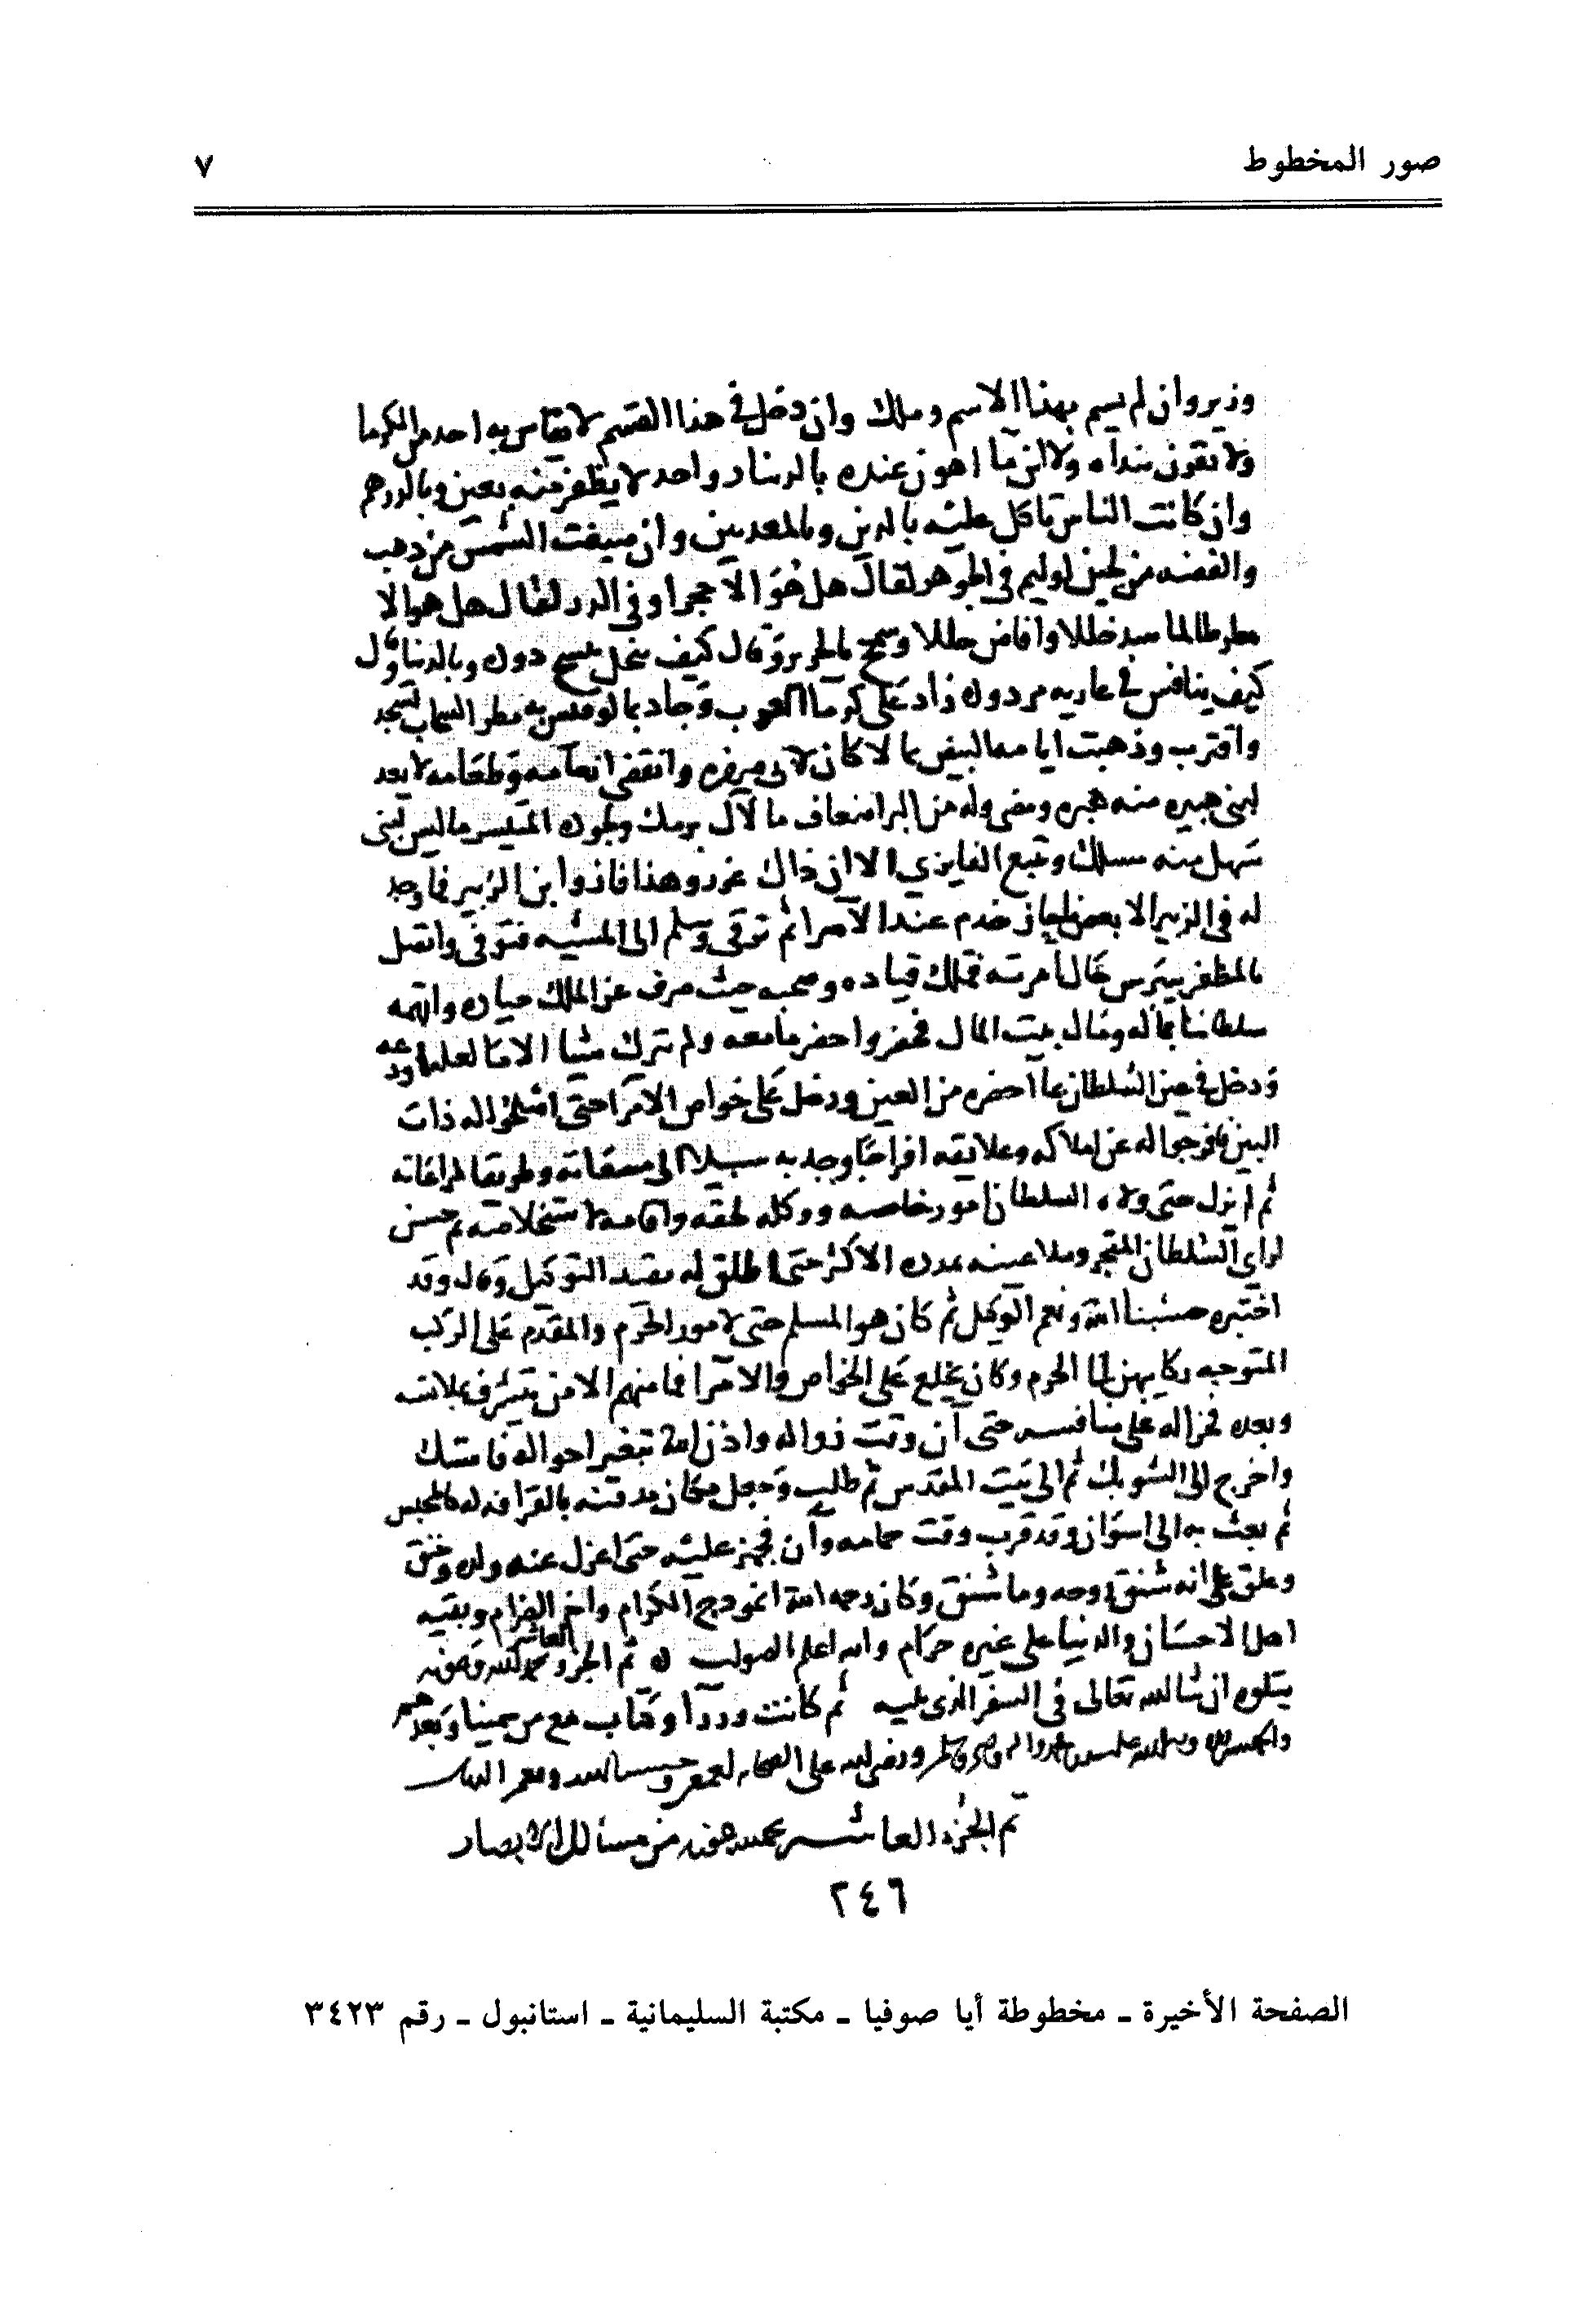 صور المخطوط
٧
وزير وان لم يسم بهذا الاسم وملك وان دخل في هذا القسم لا يقاس به احد من الكرما
ولا يقرن بنداه ولا المزن ما اهون عنده بالدينار واحد لا يظفر منه بعين وبالدرهم
وان كانت الناس تاكل عليه بالدين وبالمعدنين وان صيغت الشمس من ذهب
والفضه من لجين اوليم في الجوهر لقال هل هو الا حجر او في الدر لقال هل هو الا
وافاض حللا وسمح بالحرير وقال كيف بنسج دود وبالدنيا وقال
كيف ينافس في عاريه مردوده زاد على كرما العرب وجاد بما لو قيس به مطر السحاب
واقترب وذهبت ايامه البيض بما لا كان وانقضى انعامه وطعامه لا يعد
لبني منه ومضى وله من ما لآل برمك
سهل منه مسلك وتبع الفايزي الا ان ذاك غرر وهذا فاز وابن الزبير فما وجد
له في الزبير الا بعض خدم عند الامرا ثم توقى وسلم الى المشيه فتوفي واتصل
بالمظفر بيبرس فملك قياده وصحبه حيث صرف عن الملك واتهمه
سلطاننا بماله ومال بيت المال فحضر واحضر ما معه ولم يترك شيا الا ما لعله اودعه
ودخل في عين السلطان بما احضره من العين ودخل على خواص الامرا حتى اصلحوا له ذات
البين فافرجوا له عن املاكه وعلايقه افراجا وجد به سبيلا الى وطريقا
ثم لم يزل حتى ولاه السلطان امور خاصه ووكله لحقه واقامه لاستخلاصه ثم حسن
لراي السلطان المتجر وملا عينه بمدده الاكثر حتى اطلق له بقيد التوكيل وقال وقد
اختبره حسبنا الله ونعم الوكيل ثم كان هو المسلم حتى لامور الحرم والمقدم على الركب
المتوجه ركايبهن الى الحرم وكان يخلع على الخواص والامرا فما منهم الا من يتشرف بملابسه
ويعده فخرا له على منافسه حتى آن وقت زواله واذن الله بتغير احواله فامسك
واخرج الى الشوبك ثم الى بيت المقدس ثم طلب وجعل مكان مدفنه بالقرافه له كالمحبس
ثم بعث به الى اسوان وقد قرب وقت حمامه وآن فجهز عليه حتى اعزل عنه ولده وخنق
وعلق على انه شنق روحه وما شنق وكان رحمه الله انموذج الكرام واخر الغرام وبقيه
اهل الاحسان والدنيا على غيره حرام والله اعلم بالصواب تم الجزو العاشر بحمد الله وعونه
يتلوه ان شا الله تعالى في السفر الذي يليه ثم كانت وزرا وكتاب مع من سمينا وبعدهم
والحمد لله وصلى الله على سيدنا محمد واله وصحبه وسلم ورضي الله عن الصحابه اجمعين وحسبنا الله ونعم الوكيل
تم الجزء العاشر بحمد الله وعونه من مسالك الابصار
٢٤٦
الصفحة الأخيرة ـ مخطوطة أيا صوفيا ـ مكتبة السليمانية ـ استانبول ـ رقم ٣٤٢٣